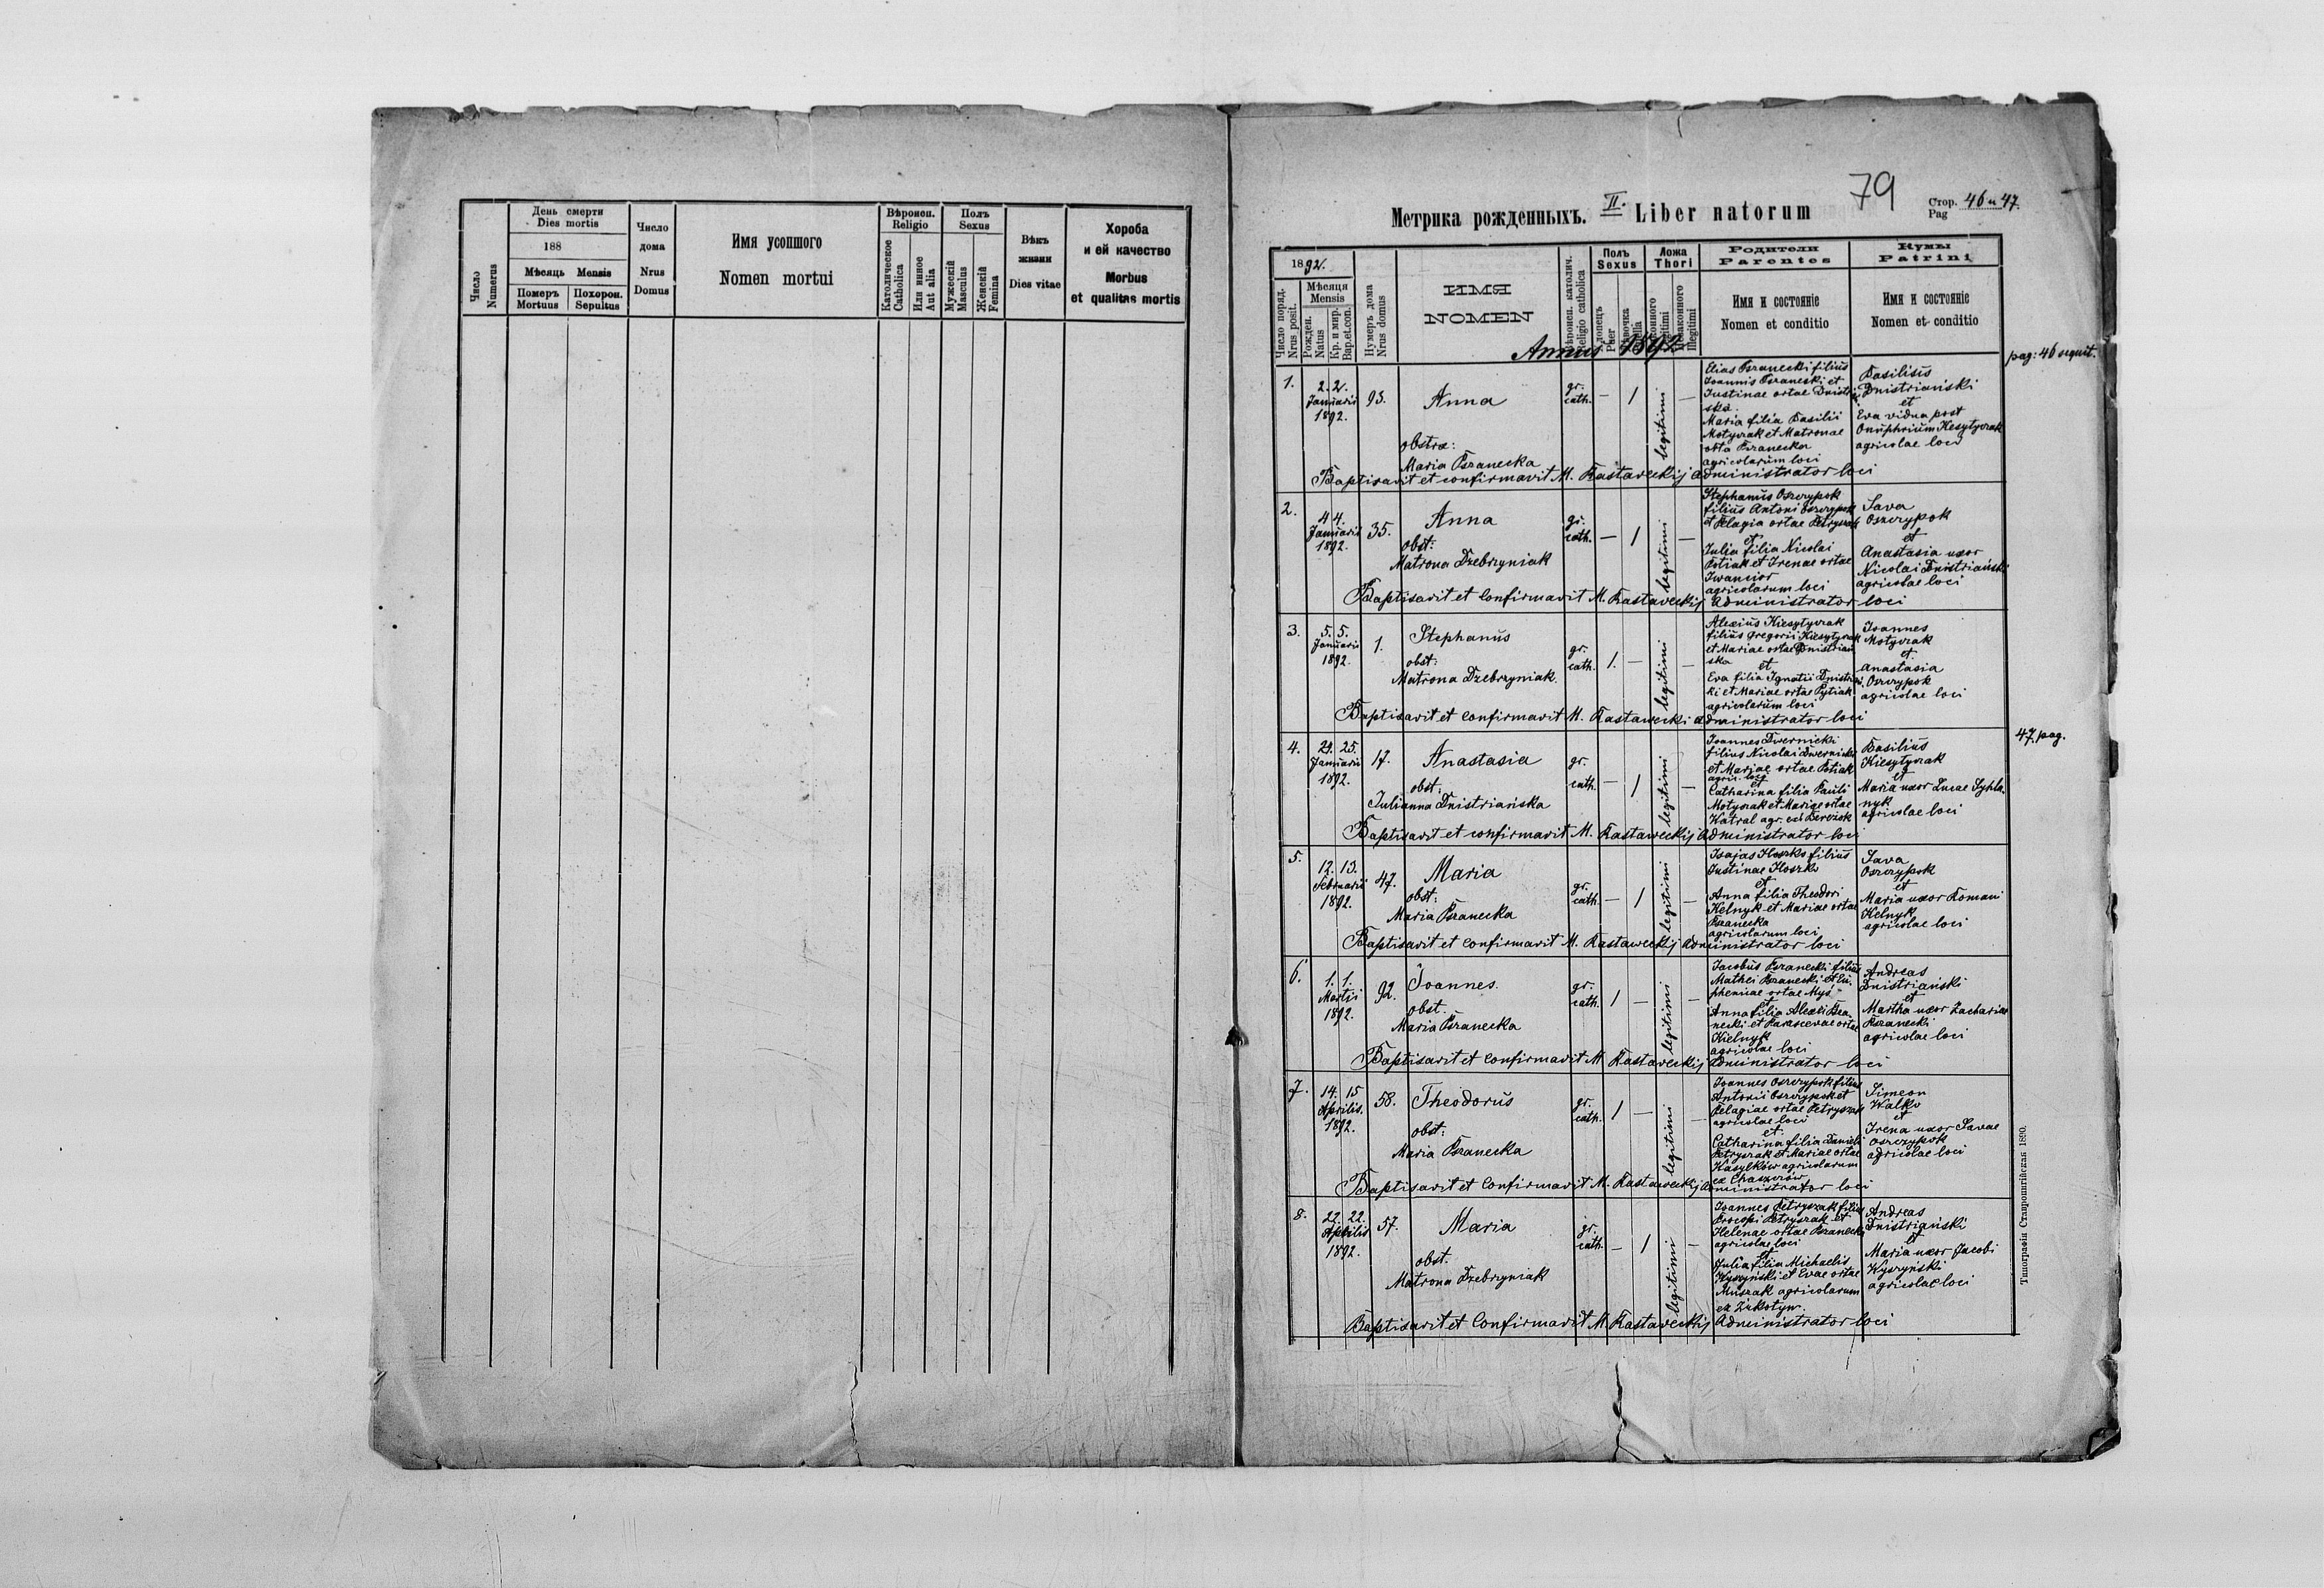 Число
Numerus
День смерти
Dies mortis
188
Мѣсяць Mensis
Померъ
Mortuus
Похорон.
Sepultus
Число
дома
Nrus
Domus
Имя усопшого
Nomen mortui
Вѣроисп.
Religio
Католическое
Catholica
Или инное
Aut alia
Полъ
Sexus
Мужескій
Masculus
Женскій
Femina
Вѣкъ
жизни
Dies vitae
Хороба
и ей качество
Morbus
et qualitas mortis
79
Метрика рожденныхъ. II. Liber natorum
Стор. 46 и 47.
Pag
1892.
Число поряд.
Nrus posit.
Мѣсяця
Mensis
Рожден.
Natus
Кр. и мир.
Bap. et. con.
Нумеръ дома
Nrus domus
ИМЯ
NOMEN
Вѣроисп. католич.
Religio catholica
Полъ
Sexus
Хлопець
Puer
Девочка
Filia
Ложа
Thori
Законного
Legitimi
Незаконного
Illegitimi
Родители
Parentes
Имя и состоянiе
Nomen et conditio
Кумы
Patrini
Имя и состоянiе
Nomen et conditio
Annus 1892
pag: 46 sequit.
1.
2. 2.
Januarii
1892.
93.
Anna
obstx:
Maria Pzanecka
gr.
cath.
— 1 legitimi —
Elias Pzanecki filius
Joannis Pzanecki et
Justinae ortae Dnistriań
ska.
Maria filia Basilii
Motyczak et Matronae
orta Pzanecka
agricolarum loci
Basilius
Dnistriański
et
Eva vidua post
Onuphrium Kesytyczak
agricolae loci
Baptisavit et confirmavit M. Rastaweckij administrator loci
2.
4 4.
Januarii
1892.
35.
Anna
obst:
Matrona Dzebrzyniak
gr.
cath.
— 1 legitimi —
Stephanus Oszczypok
filius Antoni Oszczypok
et Pelagia ortae Petryszak
et
Julia filia Nicolai
Potiak et Irenae ortae
Iwancior
agricolarum loci
Sava
Oszczypok
et
Anastasia uxor
Nicolai Dnistriański
agricolae loci
Baptisavit et Confirmavit M. Rastaweckij administrator loci
3.
5. 5.
Januarii
1892.
1.
Stephanus
obst:
Matrona Dzebrzyniak.
gr.
cath.
1. — legitimi —
Alexius Kiesytyczak
filius Gregorii Kiesytyczak
et Mariae ortae Dnistriań
ska
et
Eva filia Ignatii Dnistriań.
ki et Mariae ortae Pytiak
agricolarum loci
Joannes
Motyczak
et.
Anastasia
Oszczypok
agricolae loci
Baptisavit et confirmavit M. Rastawecki administrator loci
47 pag.
4.
24. 25.
Januarii
1892.
17.
Anastasia
obst.
Julianna Dnistriańska
gr.
cath.
— 1 legitimi —
Joannes Dwernicki
filius Nicolai Dwernicki
et Mariae ortae Potiak
agric. loci
et
Catharina filia Pauli
Motyczak et Mariae ortae
Katral agr. ex Berezok
Basilius
Kiesytyczak
et
Maria uxor Lucae Syhla-
nyk
agricolae loci
Baptisavit et confirmavit M. Rastaweckij administrator loci
5.
12. 13.
Februarii
1892.
47.
Maria
obst:
Maria Pzanecka
gr.
cath.
— 1 legitimi —
Isajas Iloszko filius
Justinae Iloszko
et
Anna filia Theodori
Kelnyk et Mariae ortae
Pzanecka
agricolarum loci
Sava
Oszczypok
et
Maria uxor Romani
Kelnyk
agricolae loci
Baptisavit et confirmavit M. Rastaweckij administrator loci
6.
1. 1.
Martii
1892.
92.
Joannes.
obst.
Maria Pzanecka
gr.
cath.
1 — legitimi —
Jacobus Pzanecki filius
Mathei Pzanecki et Eu-
phemiae ortae Myś
et
Anna filia Alexii Pza-
necki et Parascevae ortae
Kielnyk
agricolae loci
Andreas
Dnistriański
et
Martha uxor Zachariae
Pzanecki
agricolae loci
Baptisavit et confirmavit M Rastaweckij administrator loci
7.
14. 15
Aprilis.
1892.
58.
Theodorus
obst:
Maria Pzanecka
gr.
cath.
1 — legitimi —
Joannes Oszczypok filius
Antonii Oszczypok et
Pelagiae ortae Petryszak
agricolae loci
et
Catharina filia Danieli
Petryszak et Mariae ortae
Kasylków agricolarum
ex Chaszczów
Simeon
Walko
et
Irena uxor Savae
Oszczypok
agricolae loci
Baptisavit et Confirmavit M. Rastaweckij administrator loci
8.
22. 22.
Aprilis
1892.
57.
Maria
obst.
Matrona Dzebrzyniak
gr.
cath.
— 1 legitimi —
Joannes Petryszak filius
Procopi Petryszak et
Helenae ortae Pzanecka
agricolae loci
et
Julia filia Michaelis
Wyszyński et Evae ortae
Muszak agricolarum
ex Żukotyn.
Andreas
Dnistriański
et
Maria uxor Jacobi
Wyszyński
agricolae loci
Baptisavit et Confirmavit M Rastaweckij administrator loci
Типографія Ставропигійская 1890.